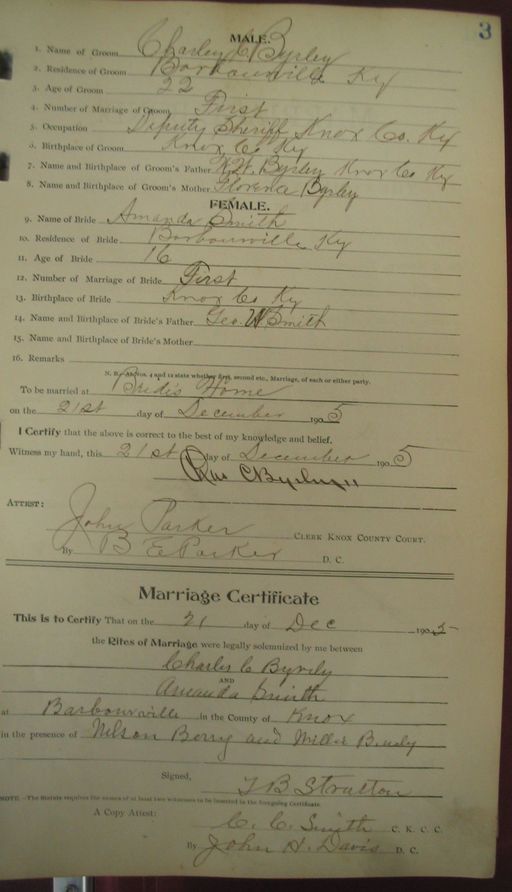 3
MALE.
1. Name of Groom Charley C Byrley
2. Residence of Groom Barbourville Ky
3. Age of Groom 22
4. Number of Marriage of Groom First
5. Occupation Deputy Sheriff Knox Co. Ky
6. Birthplace of Groom Knox Co Ky
7. Name and Birthplace of Groom's Father Byrley Knox Co Ky
8. Name and Birthplace of Groom's Mother Florence Byrley
FEMALE.
9. Name of Bride Amanda Smith
10. Residence of Bride Barbourville Ky
11. Age of Bride 16
12. Number of Marriage of Bride First
13. Birthplace of Bride Knox Co Ky
14. Name and Birthplace of Bride's Father Geo. W Smith
15. Name and Birthplace of Bride's Mother
16. Remarks
N. B.—At Nos. 4 and 12 state whether first, second etc., Marriage, of each or either party.
To be married at Bride's Home
on the 21st day of December 1905
I Certify that the above is correct to the best of my knowledge and belief.
Witness my hand, this 21st day of December 1905
Chas C Byrley
ATTEST:
John Parker CLERK KNOX COUNTY COURT.
By B E Parker D. C.
Marriage Certificate
This is to Certify That on the 21 day of Dec 1905
the Rites of Marriage were legally solemnized by me between
Charles C Byrely
AND
Amanda Smith
at Barbourville in the County of Knox
in the presence of Nelson Berry and
Signed,
T B Stratton
NOTE.—The Statute requires the names of at least two witnesses to be inserted in the foregoing Certificate.
A Copy Attest: C. C. Smith C. K. C. C.
By John H. Davis D. C.